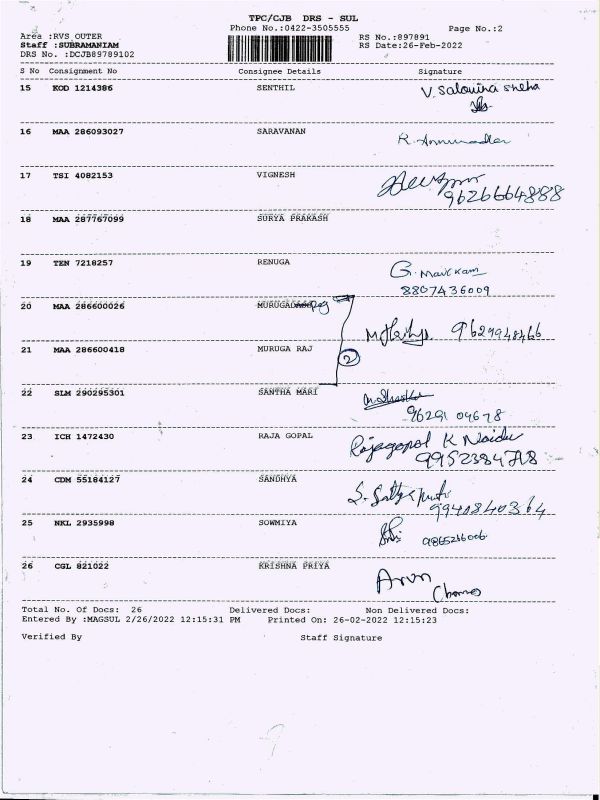 TPC/CJB DRS - SUL
Phone No.:0422-3505555 Page No.:2
Area :RVS OUTER RS No.:897891
Staff :SUBRAMANIAM RS Date:26-Feb-2022
DRS No. :DCJB89789102
S No Consignment No Consignee Details Signature
15 KOD 1214386 SENTHIL V. Salouina sneha
16 MAA 286093027 SARAVANAN R.
17 TSI 4082153 VIGNESH
9626664888
18 MAA 287767099 SURYA PRAKASH
19 TEN 7218257 RENUGA G. Manickam
8807436009
20 MAA 286600026
9629948466
21 MAA 286600418 MURUGA RAJ 2
22 SLM 290295301 SANTHA MARI
96291 09678
23 ICH 1472430 RAJA GOPAL Rajagopal K Naidu
9952384718
24 CDM 55184127 SANDHYA
9940840364
25 NKL 2935998 SOWMIYA
26 CGL 821022 KRISHNA PRIYA Arun
Total No. Of Docs: 26 Delivered Docs: Non Delivered Docs:
Entered By :MAGSUL 2/26/2022 12:15:31 PM Printed On: 26-02-2022 12:15:23
Verified By Staff Signature